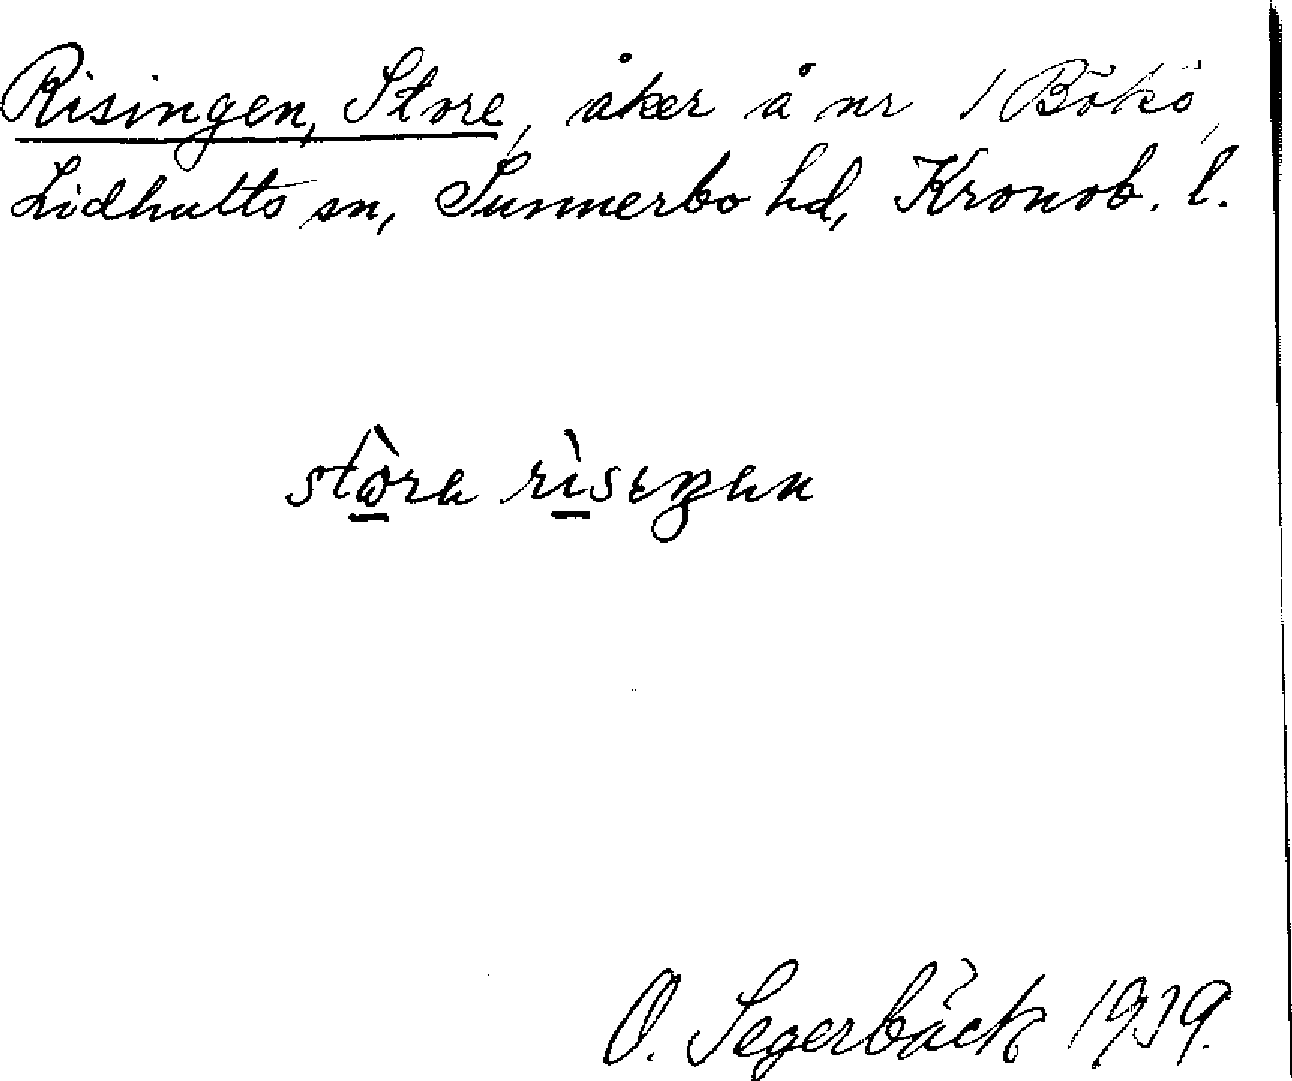 Risingen, Store, åker å nr 1 Bökö,
Lidhults sn, Sunnerbo hd, Kronob. l.
O. Segerbäck 1939.